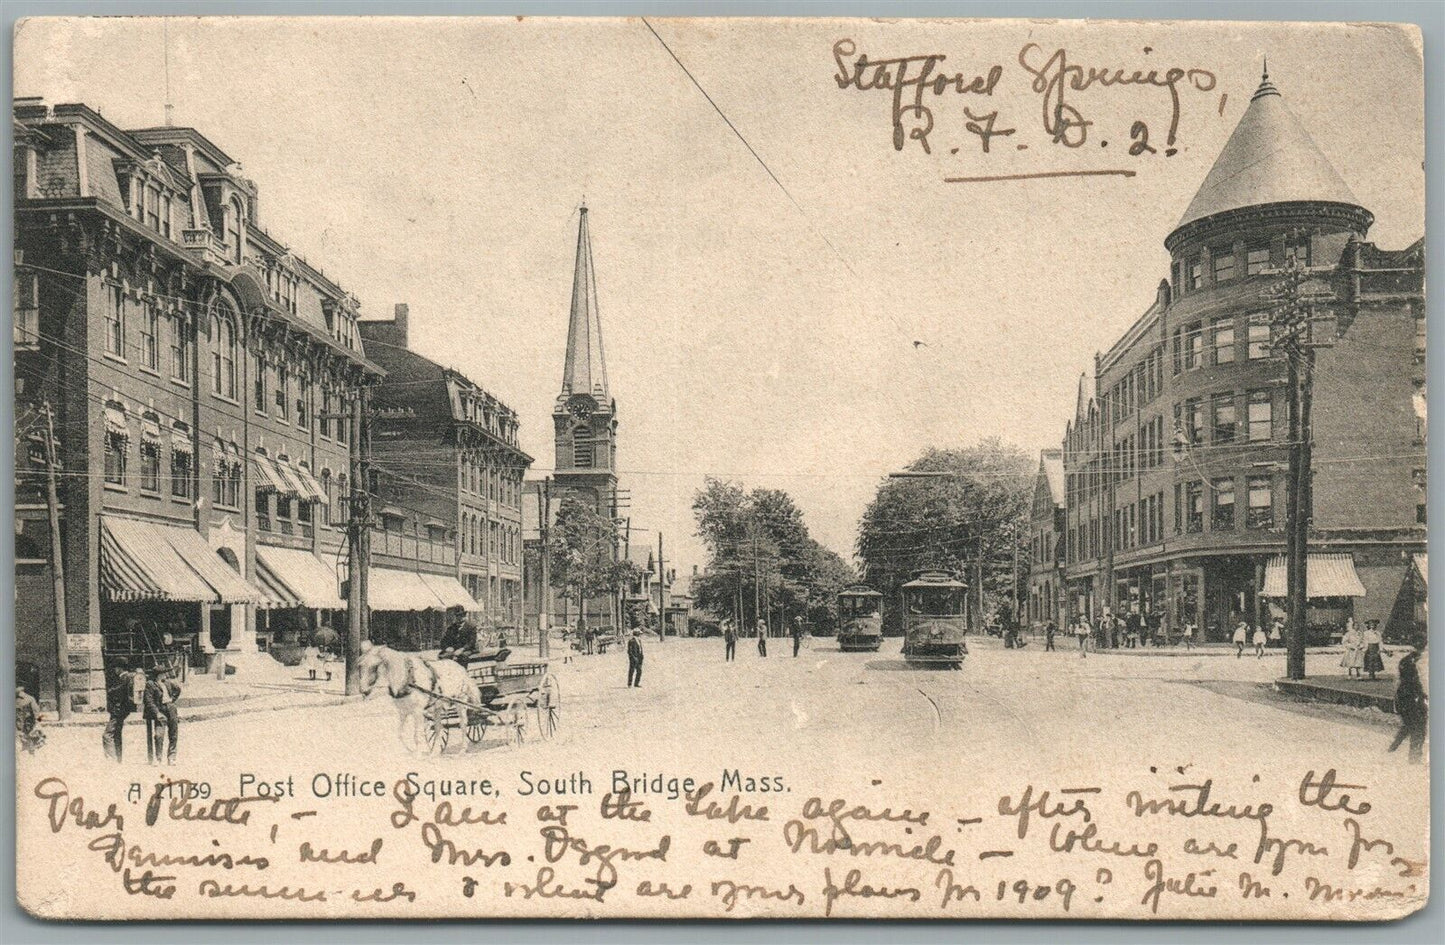 Stafford Springs,
R. F. D. 2.
A 21139 Post Office Square, South Bridge, Mass.
Dear, - I am at the Lake again - after visiting the
Dennisis and Mrs. Osgood at Norwich - Where are you for
the summer & what are your plans for 1909? Julie M.